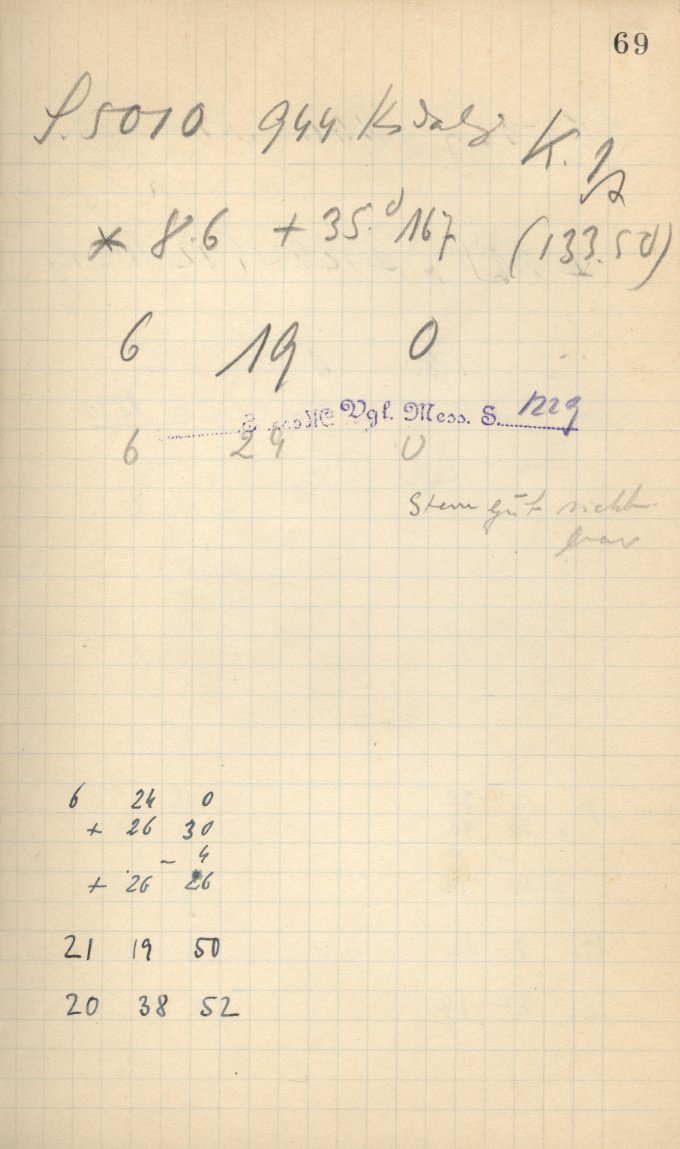 69
S. 5010 944 Hidalgo K. 1/2
* 8.6 + 35.d 167 (133.5d)
6 19 0
Vgl. Mess. S. 1229
6 24 0
Stern gut sichtbar
6 24 0
+ 26 30
– 4
+ 26 26
21 19 50
20 38 52